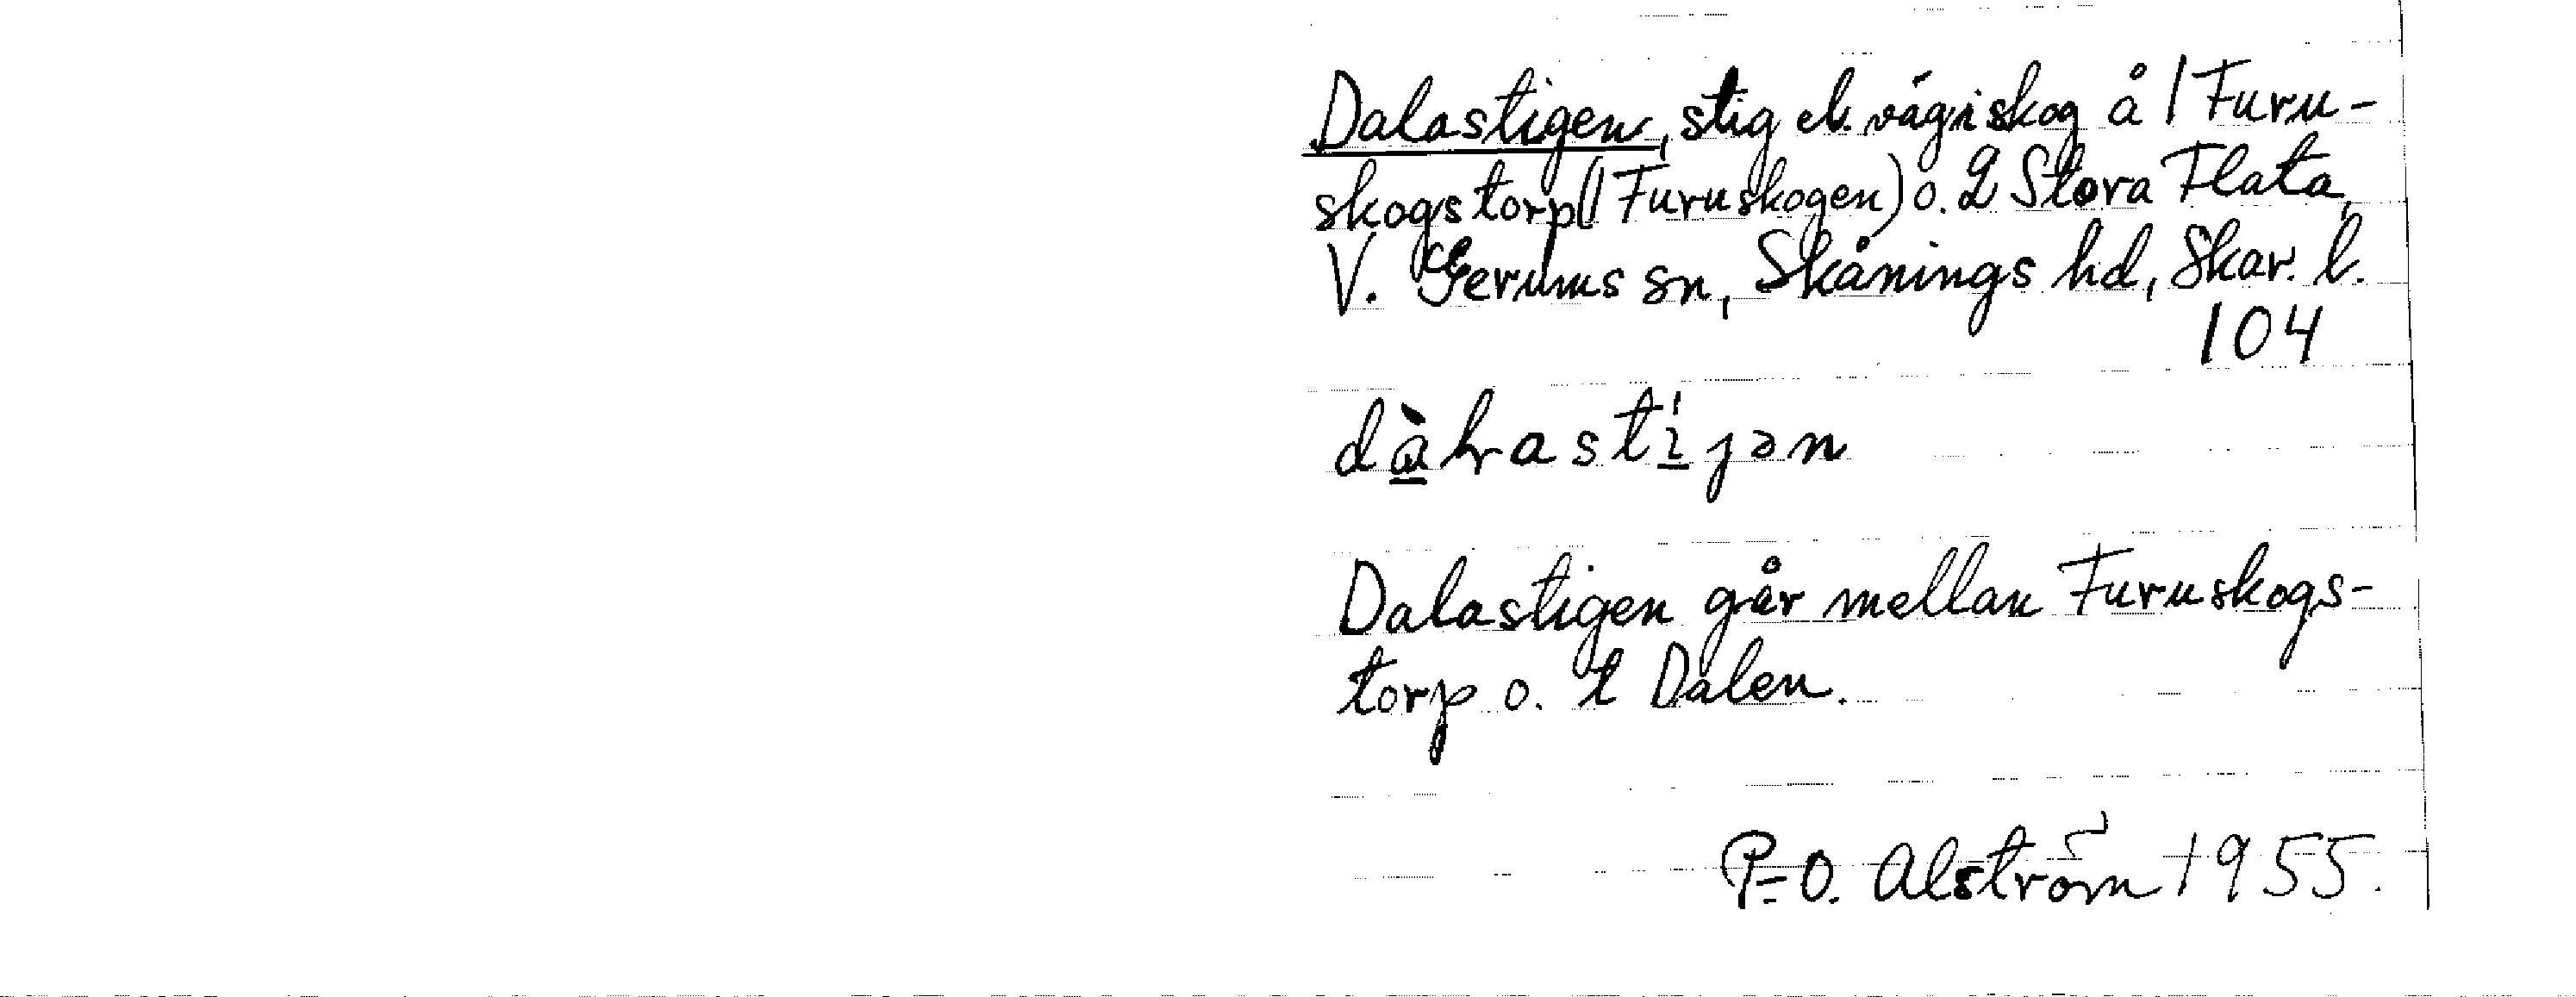 Dalastigen, stig el. väg i skog å 1 Furu-
skogstorp (1 Furuskogen) o. 2 Stora Flata,
V. Gerums sn, Skånings hd, Skar. l.
104
Dalastigen går mellan Furuskogs-
torp o. t Dalen.
P.-O. Alström 1955.